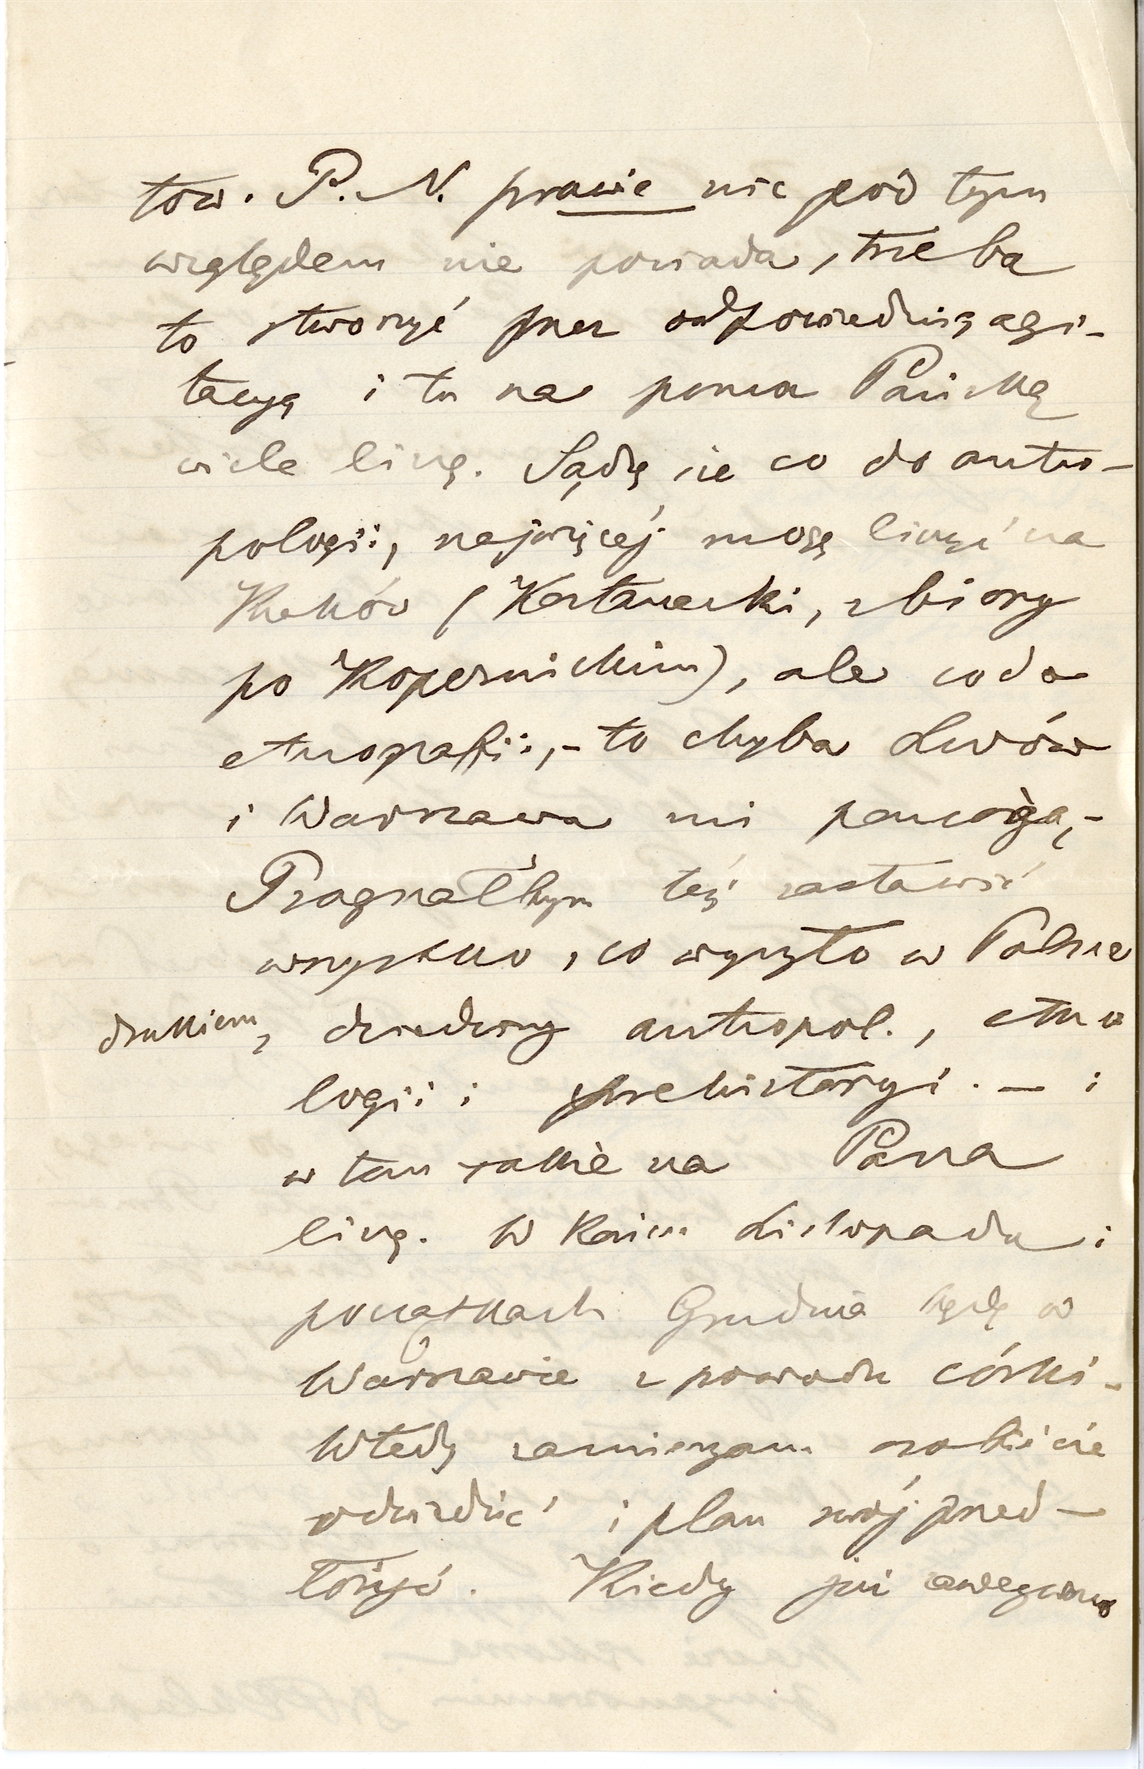 tow. P. N. prawie nic pod tym
względem nie posiada, trzeba
to stworzyć przez odpowiednią agi-
tacyą i tu na pomoc Pańską
wiele liczę. Sądzę że co do antro-
pologii, najwięcej mogę liczyć na
Kraków (Kostanecki, zbiory
po Kopernickim), ale co do
etnografii,- to chyba Lwów
i Warszawa mi pomogą,-
Pragnąłbym też zestawić
wszystko, co wyszło w Polsce
drukiem, z dziedziny antropol., etno
logii i prehistoryi. — i
w tem także na Pana
liczę. W końcu Listopada i
początkach Grudnia będę w
Warszawie z powodu córki.-
Wtedy zamierzam osobiście
odwiedzić i plan swój przed-
łożyć. Kiedy już